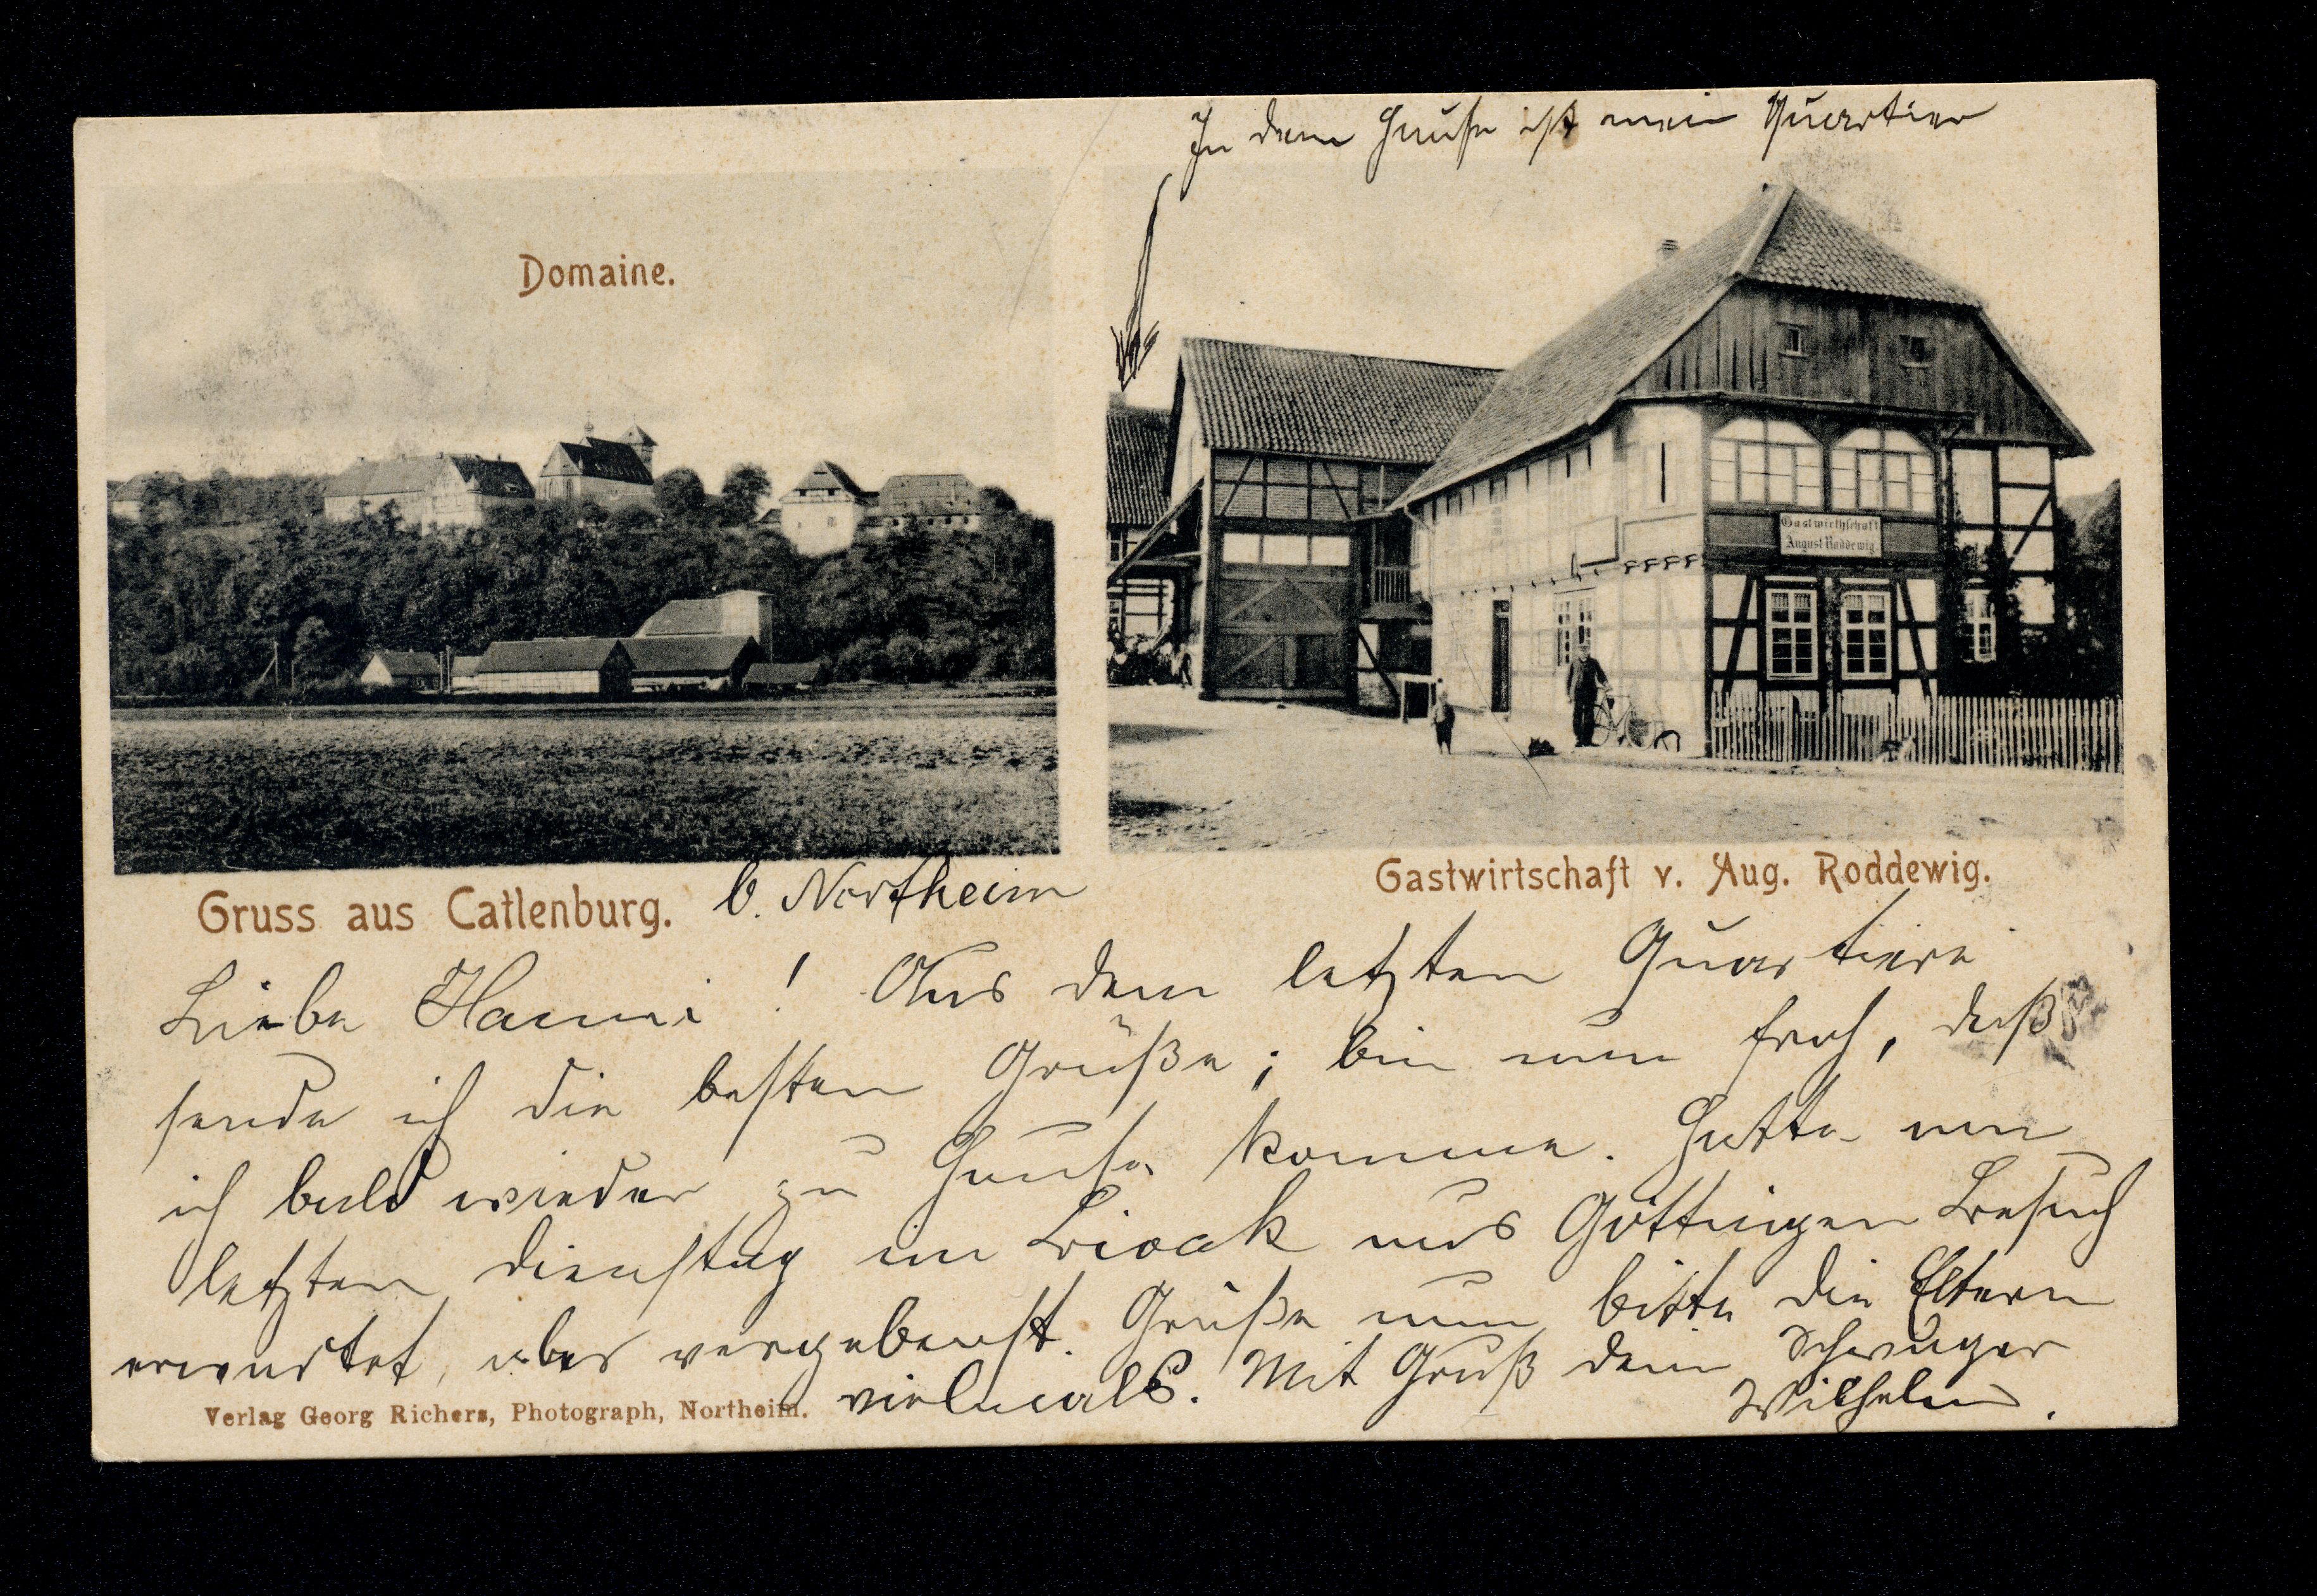 In dem Hause ist mein Quartier
Domaine.
Gastwirthschaft
August Roddewig
Gruss aus Catlenburg. b. Northeim
Gastwirtschaft v. Aug. Roddewig.
Liebe Hanni! Aus dem letzten Quartiere
sende ich die besten Grüße; bin nun froh, daß
ich bald wieder zu Hause komme. Hatte am
letzten Dienstag im Biwak aus Göttingen Besuch
erwartet, aber vergebenst. Grüße nun bitte die Eltern
vielmals. Mit Gruß dein Schwager
Wilhelm.
Verlag Georg Richers, Photograph, Northeim.